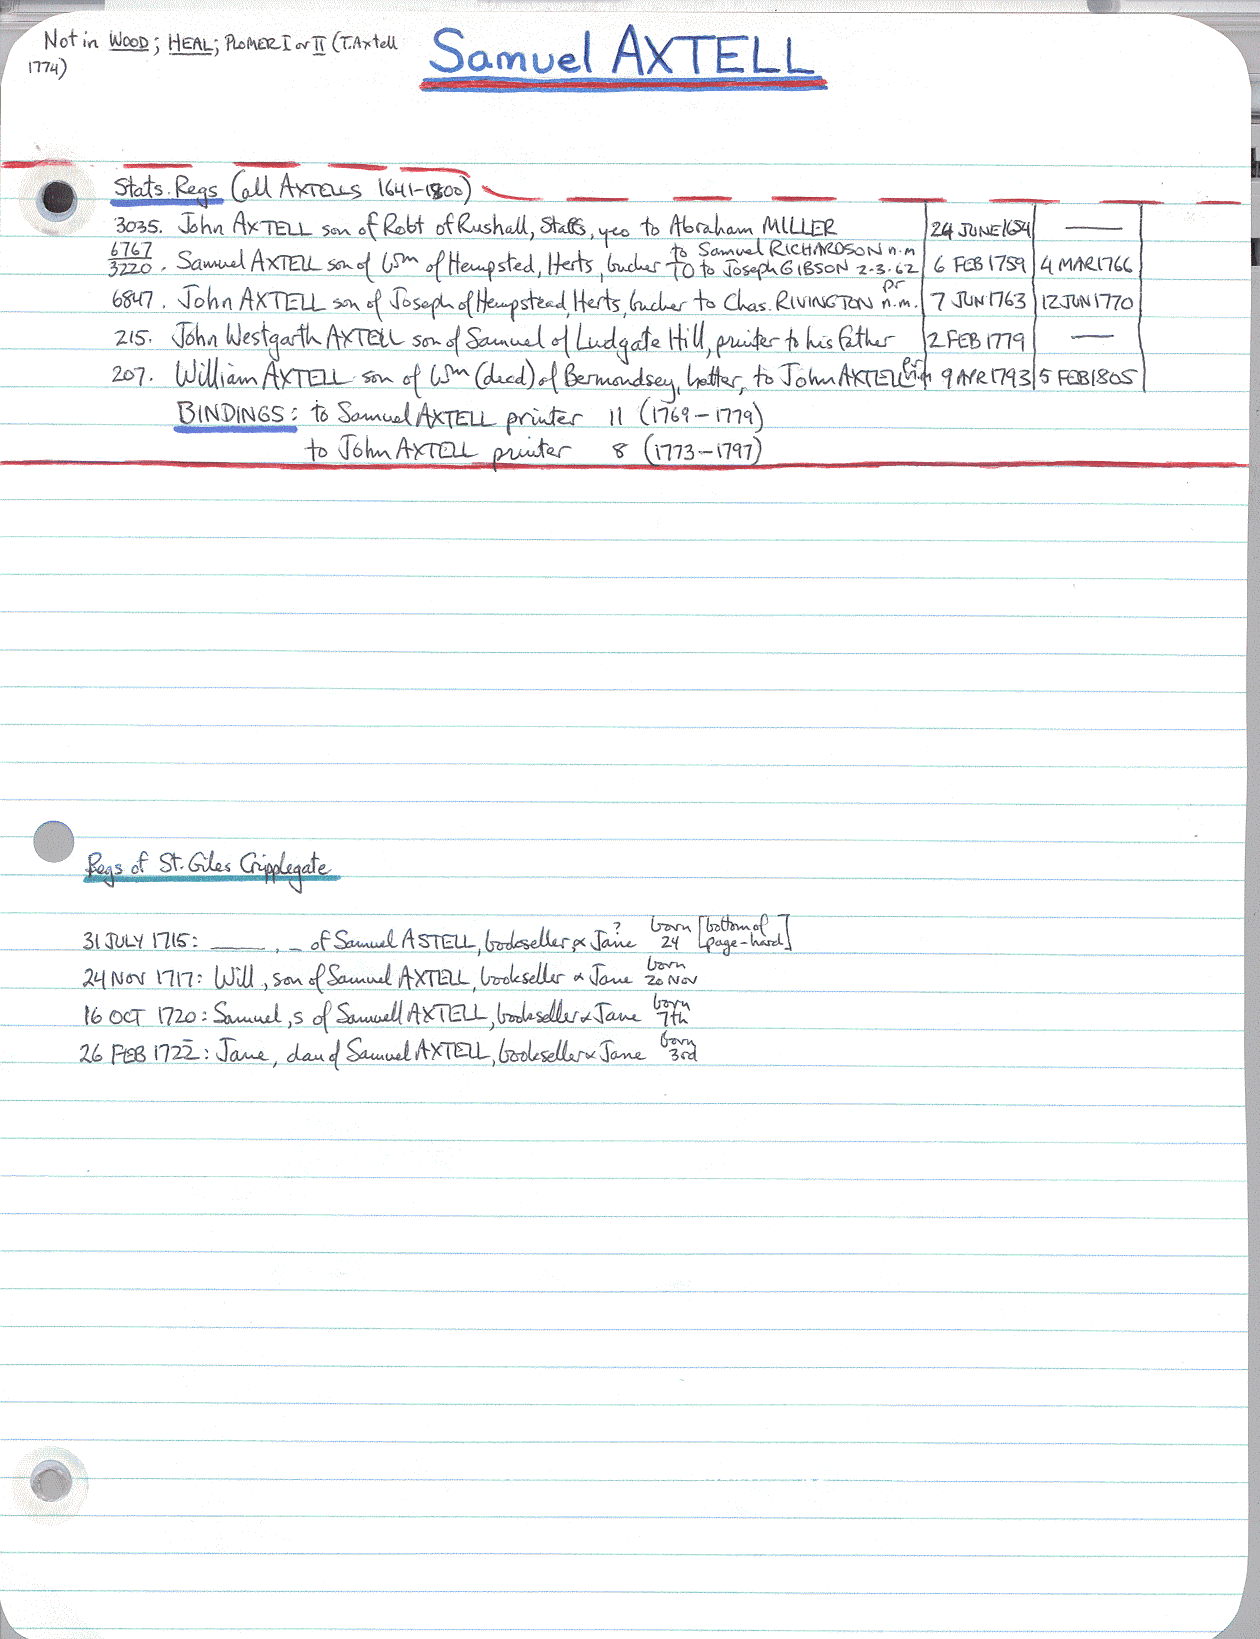 Not in WOOD; HEAL; PLOMER I or II (T. Axtell
1774)
Samuel AXTELL
Stats. Regs (all AXTELLS 1641-1800)
3035. John AXTELL son of Robt of Rushall, Staffs, yeo to Abraham MILLER 24 JUNE 1654 —
6767 to Samuel RICHARDSON n.m
3220. Samuel AXTELL son of Wm of Hempsted, Herts, bucher TO to Joseph GIBSON 2.3.62 6 FEB 1759 4 MAR 1766
6847. John AXTELL son of Joseph of Hempstead, Herts, bucher to Chas. RIVINGTON pr n.m. 7 JUN 1763 12 JUN 1770
215. John Westgarth AXTELL son of Samuel of Ludgate Hill, printer to his father 2 FEB 1779 —
207. William AXTELL son of Wm (decd) of Bermondsey, hatter, to John AXTELL pr n.m 9 APR 1793 5 FEB 1805
BINDINGS: to Samuel AXTELL printer 11 (1769-1779)
to John AXTELL printer 8 (1773-1797)
Regs of St. Giles Cripplegate
31 JULY 1715: ____, _ of Samuel ASTELL, bookseller & Jane ? born 24 [bottom of page-hard]
24 NOV 1717: Will, son of Samuel AXTELL, bookseller & Jane born 20 Nov
16 OCT 1720: Samuel, s of Samuell AXTELL, bookseller & Jane born 7th
26 FEB 1722: Jane, dau of Samuel AXTELL, bookseller & Jane born 3rd